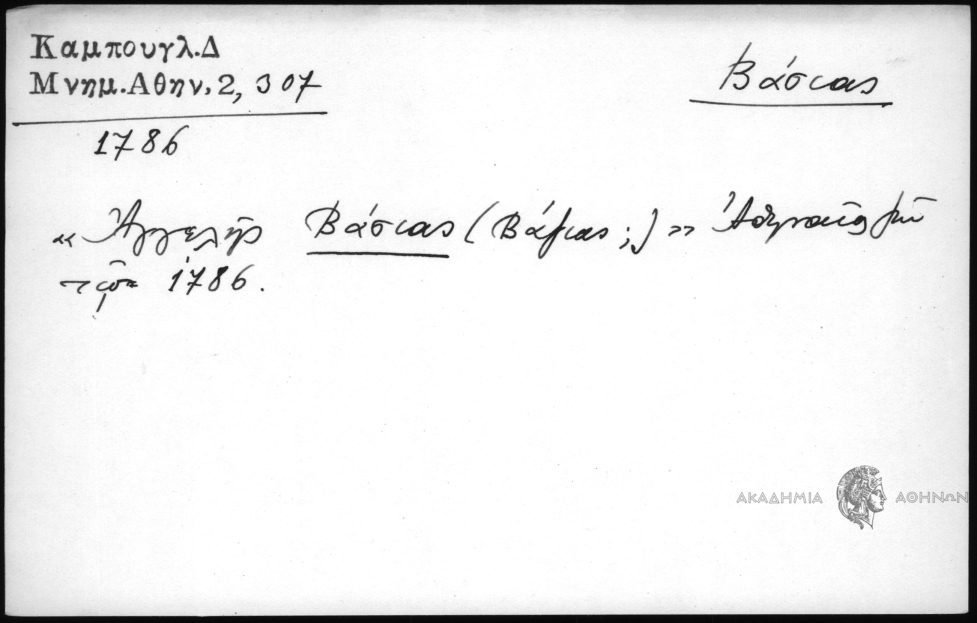 Καμπουγλ.Δ
Μνημ.Αθην. 2, 307
Βάσιας
1786
« Ἀγγελῆς Βάσιας (Βάγιας ;) » Ἀθηναῖος
1786.
ΑΚΑΔΗΜΙΑ ΑΘΗΝΩΝ